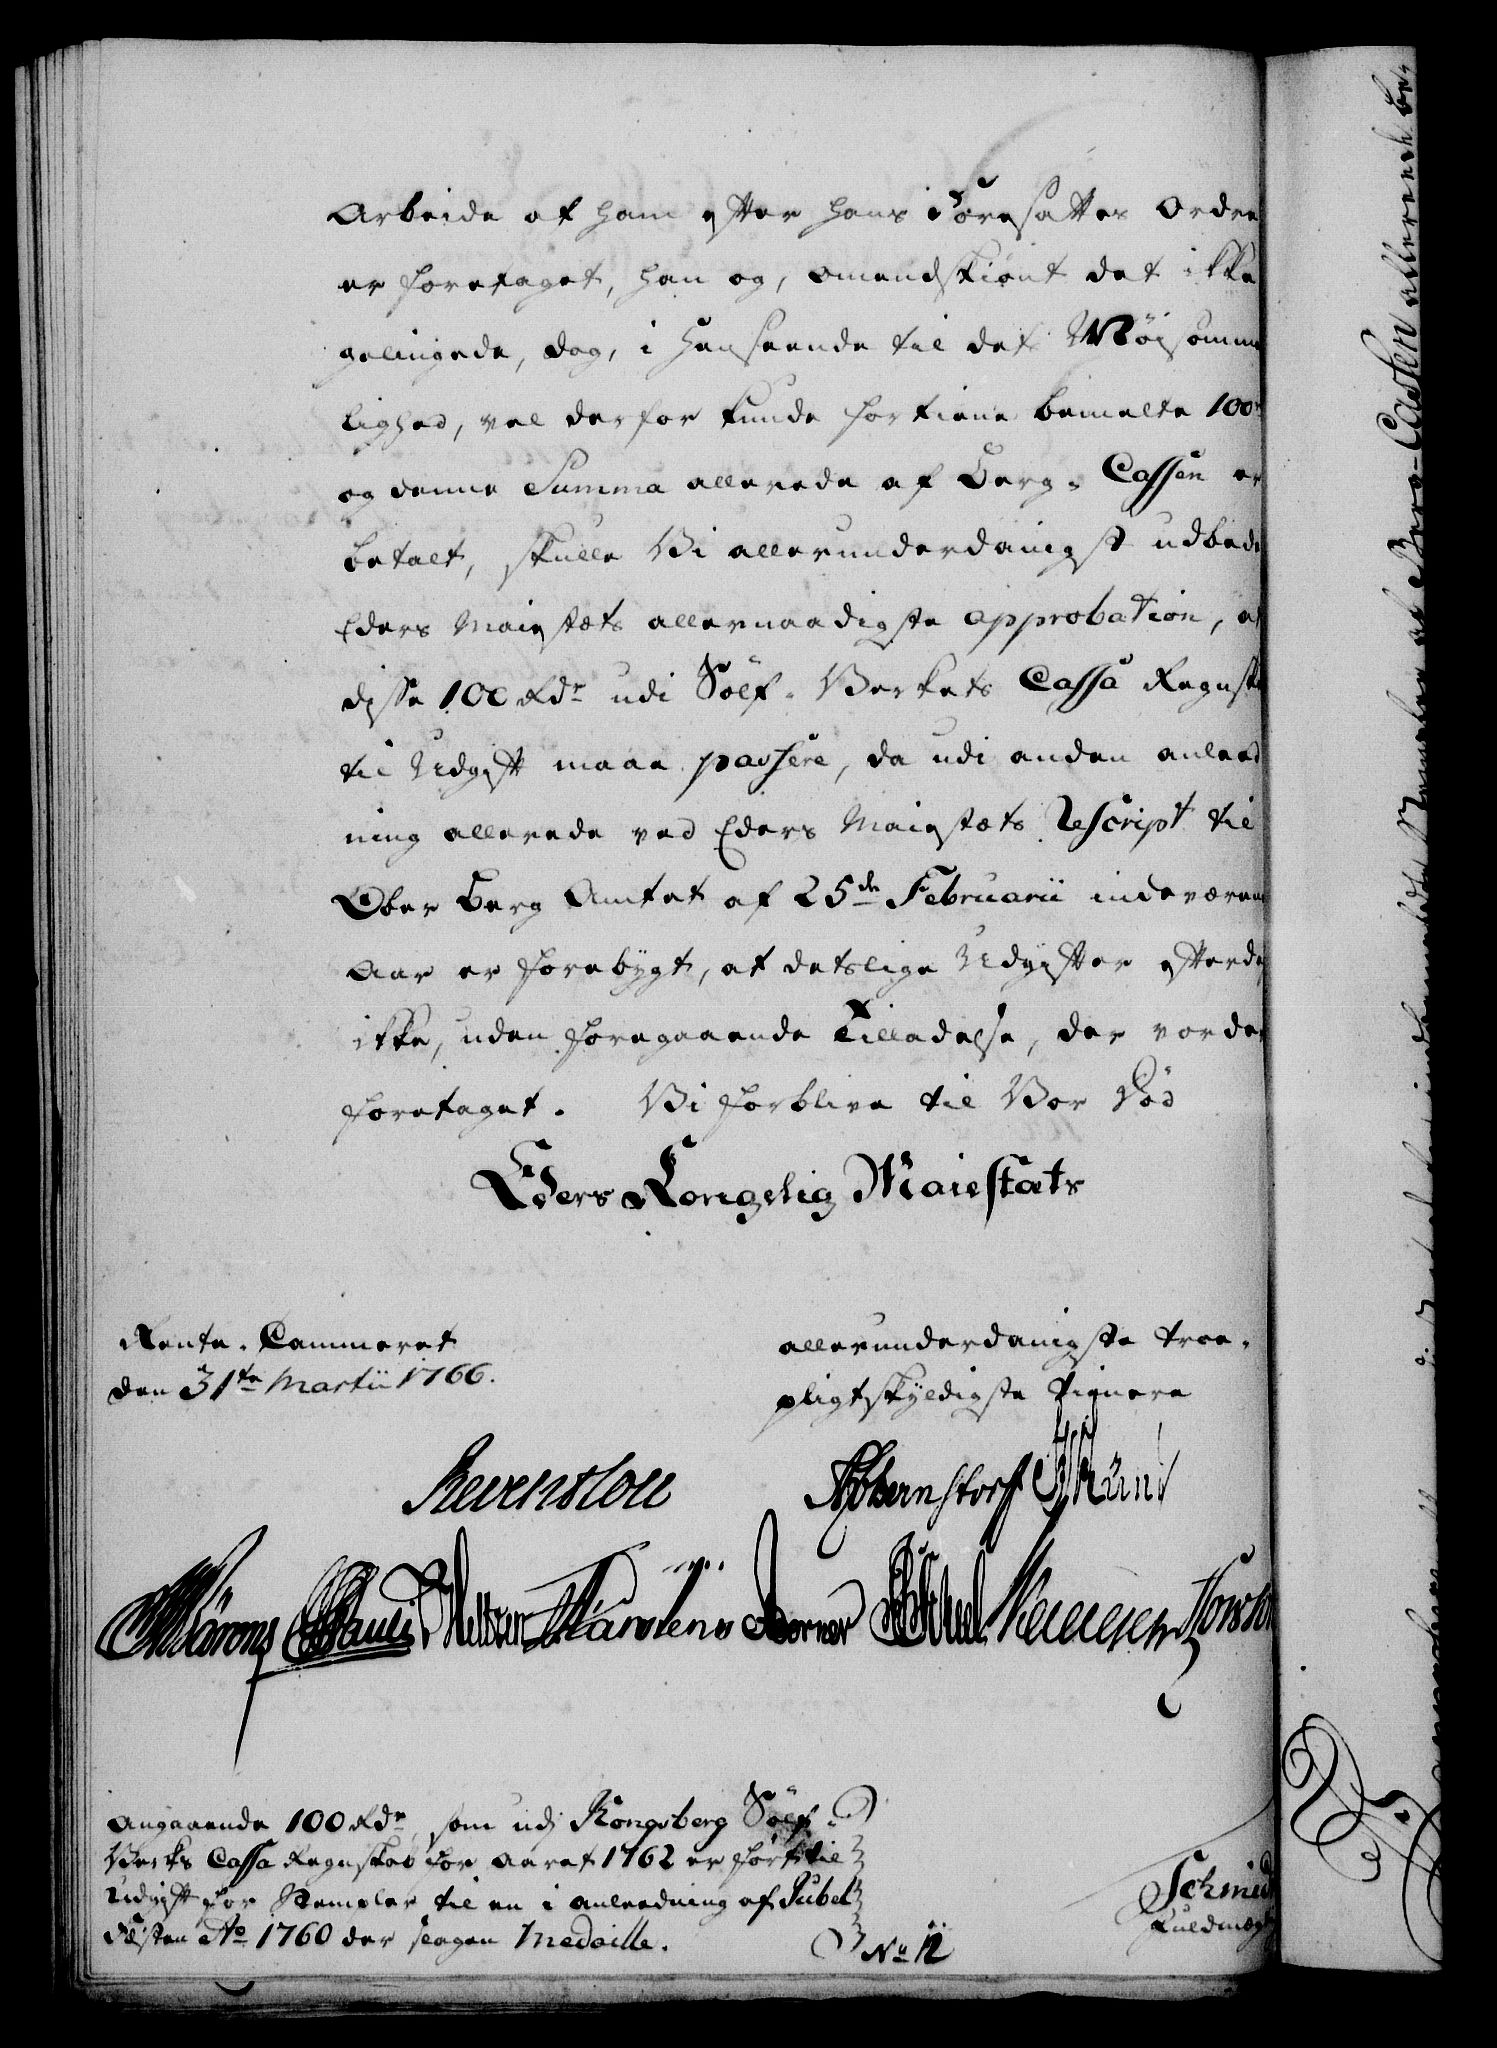 Arbeide af ham efter hans Foresattes Ordre
er foretaget, han og, omendskiönt det ikke
gelingede, dog, i Henseende til det Möisomme
lighed, vel derfor kunde fortiene bemelte 100
og denne Summa allerede af Berg-Cassen er
betalt, skulle Vi allerunderdanigst udbede
Eders Majestæts allernaadigste approbation, at
disse 100 Rdr udi Sölf-Verkets Cassa Regnska
til Udgift maae passere, da udi anden anleed
ning allerede ved Eders Maiestæts Rescript til
Ober Berg Amtet af 25de Februarii indeværen
Aar er forebygt, at detslige Udgifter efterde
ikke, uden foregaaende Tilladelse, der vorder
foretaget. Vi forblive til Vor Död
Eders Kongelig Maiestæts
Rente-Cammeret
den 31te Martii 1766.
allerunderdanigste troe-
pligtskyldigste Tienere
Reventlou
Bernstorff
Pauli Meltzer Karstens Berner
Angaaende 100 Rdr, som udj Kongsberg Sölf-
Verks Cassa Regnskab for Aaret 1762 er fört til
Udgift for Stempler til en i anleedning af Jubel
Festen Ao 1760 der slagen Medaille.
No 12
Schmidt
Fuldmægt
Berg-Cassen allereede be-